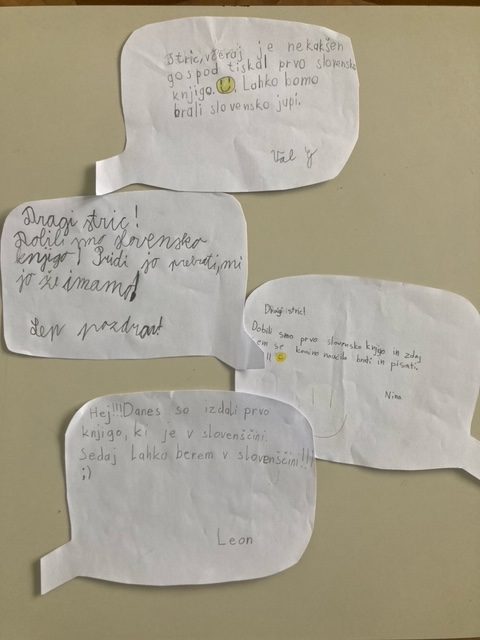 Stric, včeraj je nekakšen
gospod tiskal prvo slovensko
knjigo. Lahko bomo
brali slovensko jupi.
Val
Dragi stric!
Dobili smo slovensko
knjigo! Pridi jo prebrati, mi
jo že imamo!
Lep pozdrav!
Dragi stric!
Dobili smo prvo slovensko knjigo in zdaj
se bomo naučila brati in pisati
!!
Nina
Hej!!! Danes so izdali prvo
knjigo, ki je v slovenščini.
Sedaj Lahko berem v slovenščini!!!
;)
Leon